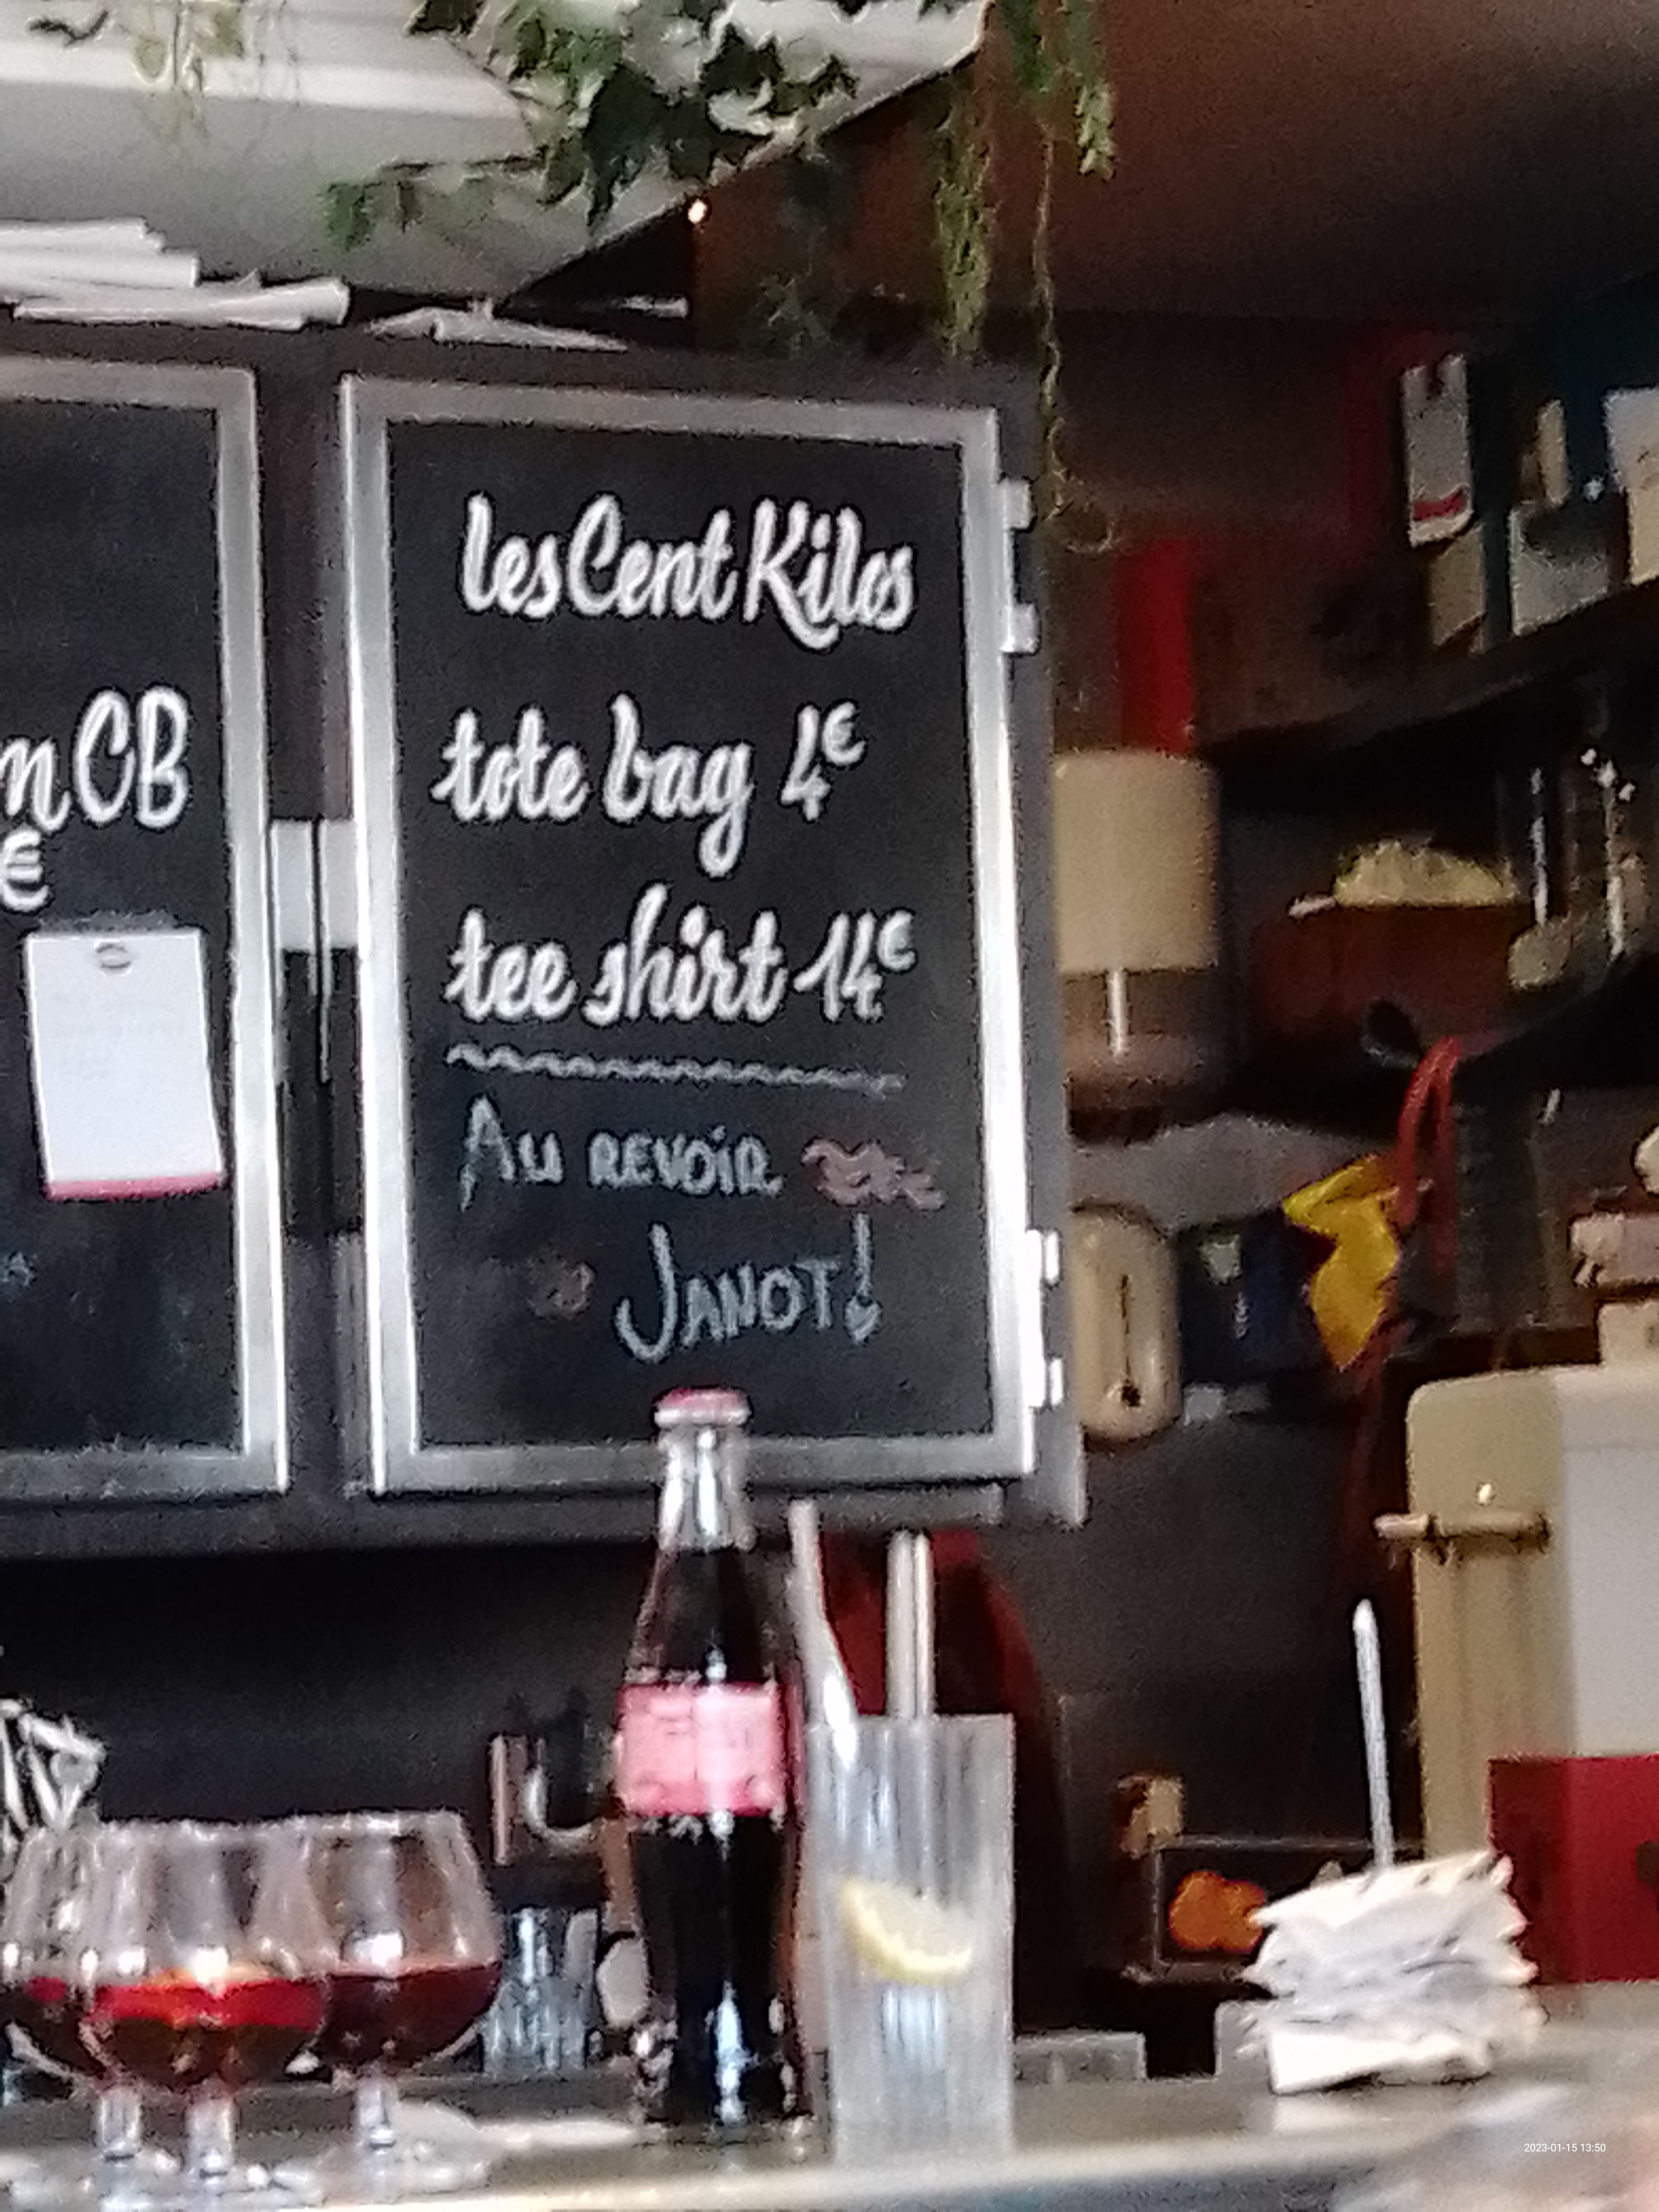 les Cent Kilos
tote bag 4€
tee shirt 14€
Au REVOIR
JANOT!
CB
€
2023-01-15 13:50